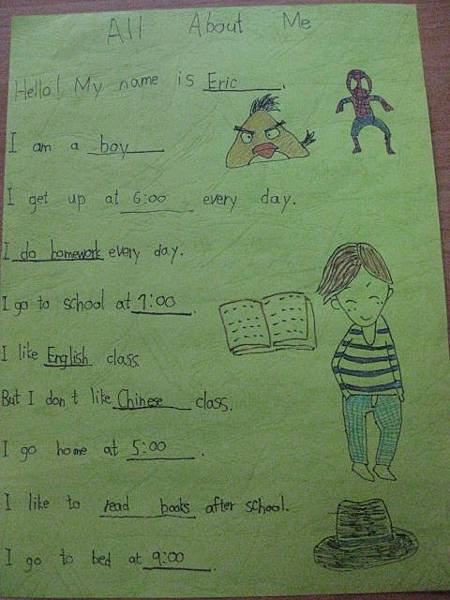 All About Me
Hello! My name is Eric.
I am a boy
I get up at 6:00 every day.
I do homework every day.
I go to school at 7:00.
I like English class.
But I don't like Chinese class.
I go home at 5:00.
I like to read books after school.
I go to bed at 9:00.